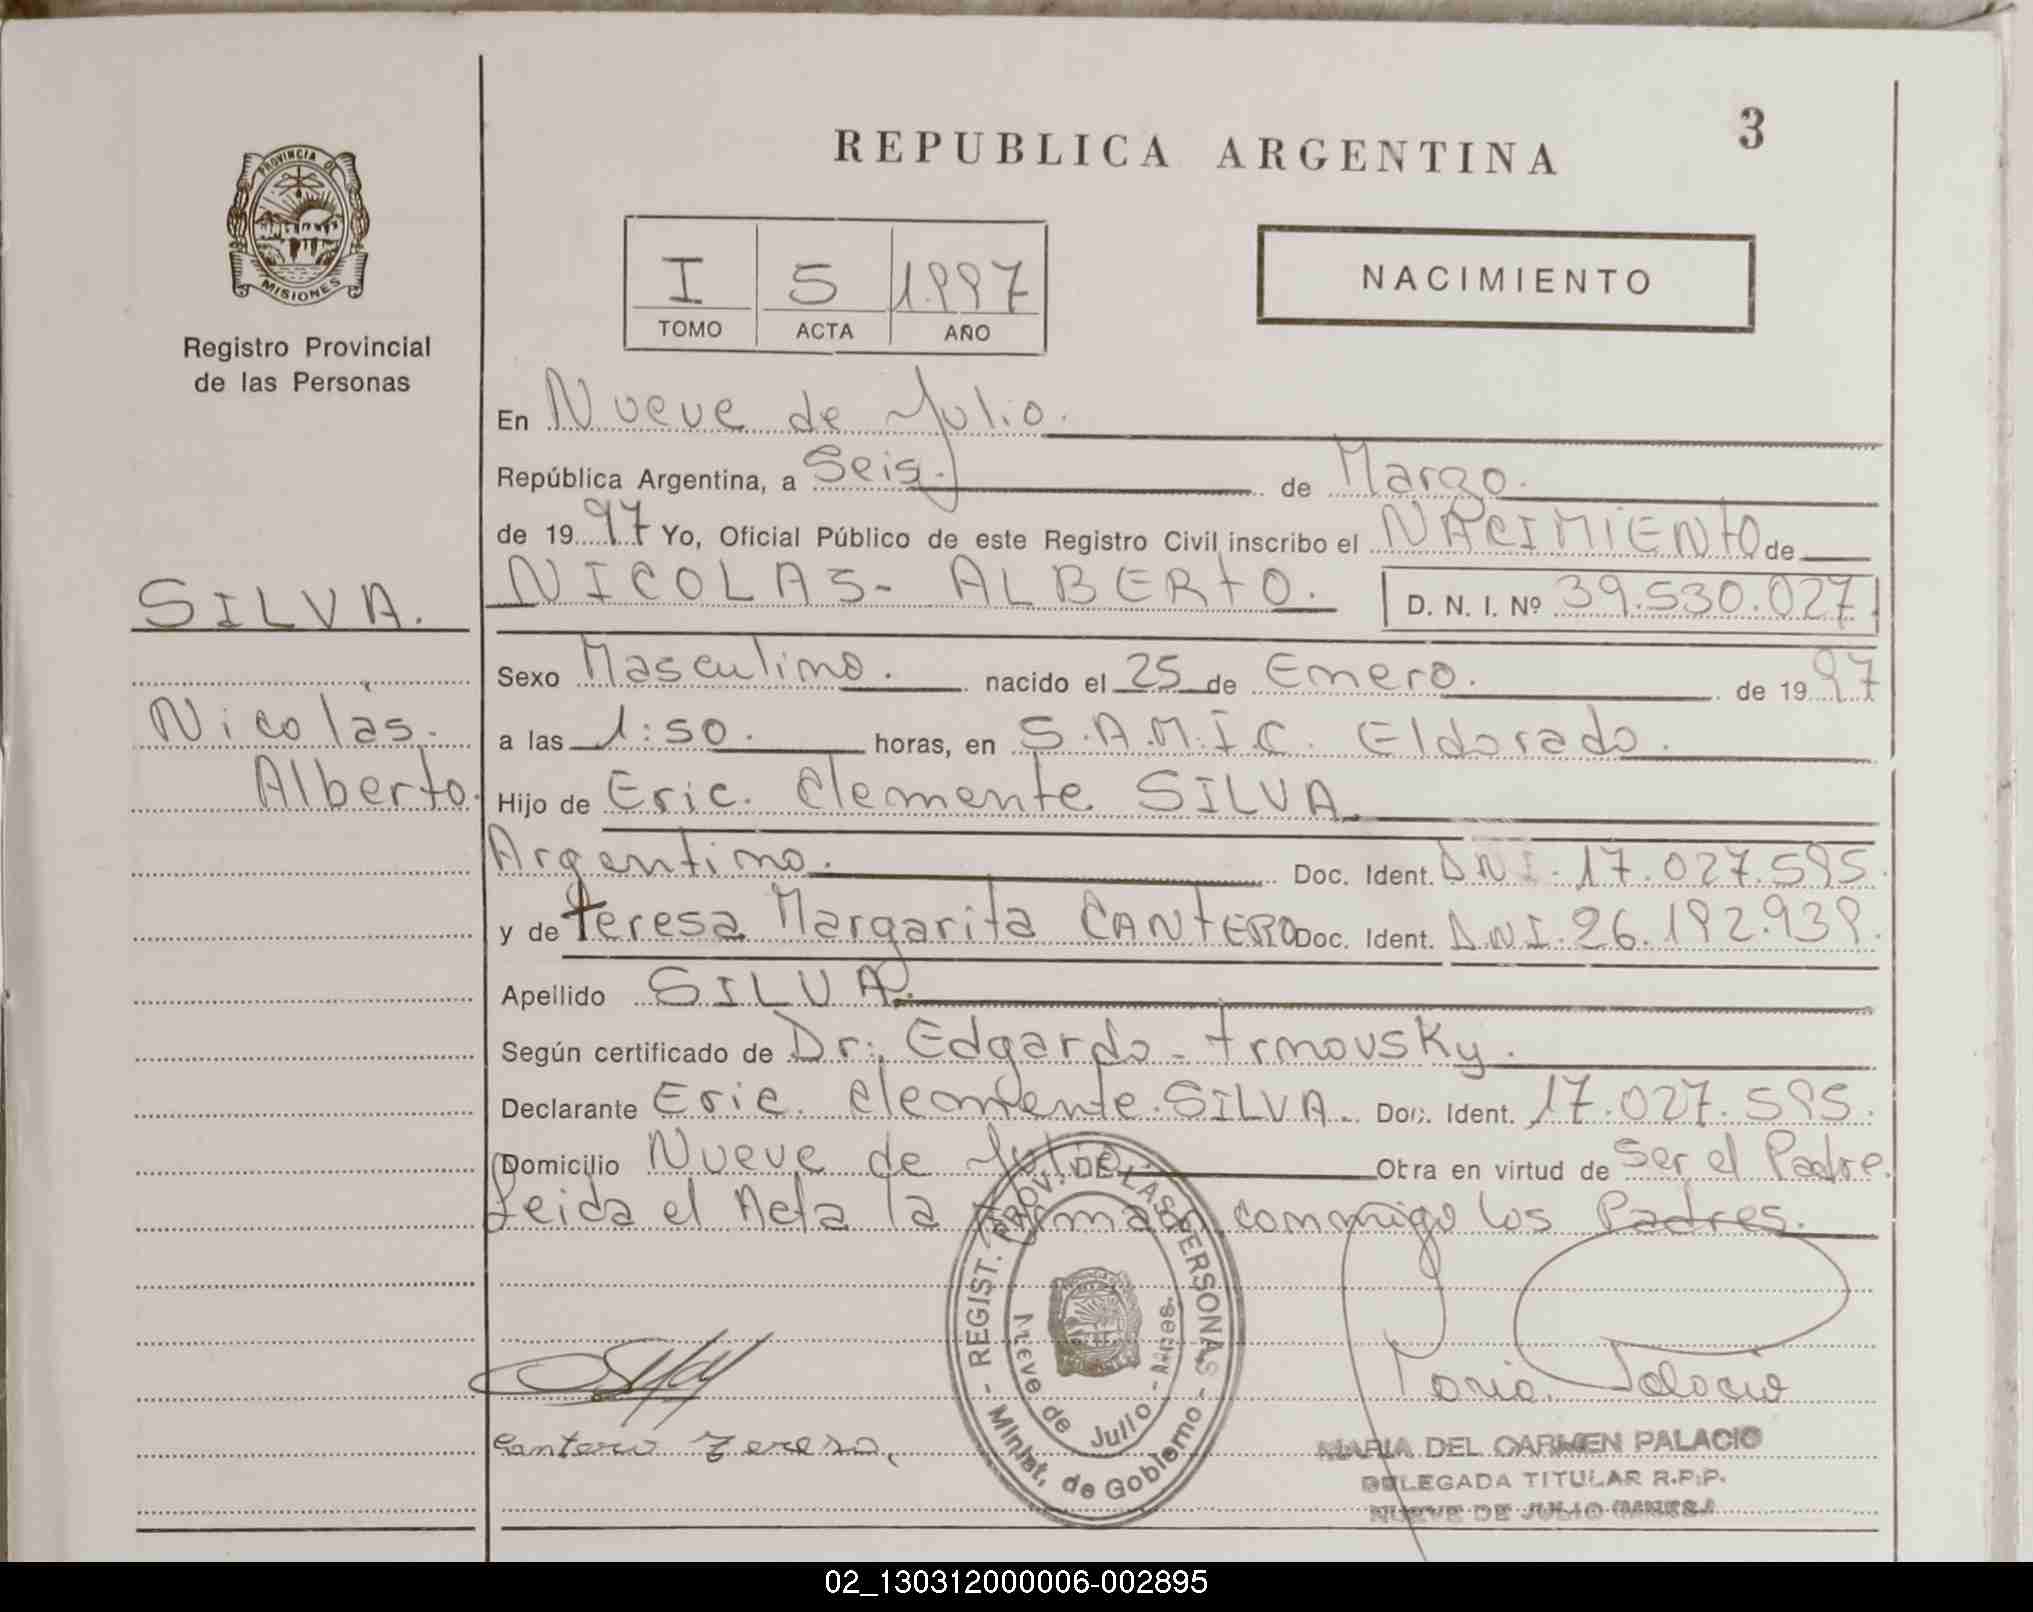 REPUBLICA ARGENTINA
3
PROVINCIA DE
MISIONES
Registro Provincial
de las Personas
I 5 1.997
TOMO ACTA AÑO
NACIMIENTO
En Nueve de Julio.
República Argentina, a Seis. de Marzo.
de 1997 Yo, Oficial Público de este Registro Civil inscribo el NACIMIENTO de
NICOLAS- ALBERTO. D. N. I. Nº 39.530.027.
SILVA.
Nicolás.
Alberto.
Sexo Masculino. nacido el 25 de Enero. de 1997
a las 1:50. horas, en S.A.M.I.C. Eldorado.
Hijo de Eric. Clemente SILVA.
Argentino. Doc. Ident. DNI. 17.027.595.
y de Teresa Margarita CANTERO Doc. Ident. DNI. 26.192.939.
Apellido SILVA.
Según certificado de Dr: Edgardo - Trnovsky.
Declarante Eric. Clemente. SILVA. Doc. Ident. 17.027.595.
Domicilio Nueve de Julio Obra en virtud de Ser el Padre.
Leida el Acta la firman conmigo los Padres.
REGIST. PROV. DE LAS PERSONAS - Minist. de Gobierno -
Nueve de Julio - Mnes.
Cantero Teresa.
Maria Palacio
MARIA DEL CARMEN PALACIO
DELEGADA TITULAR R.P.P.
NUEVE DE JULIO (MNES.)
02_130312000006-002895